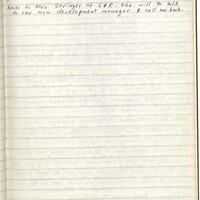 to Mrs. Stringer of C&E. She will to talk
to our new development manager & call me back...